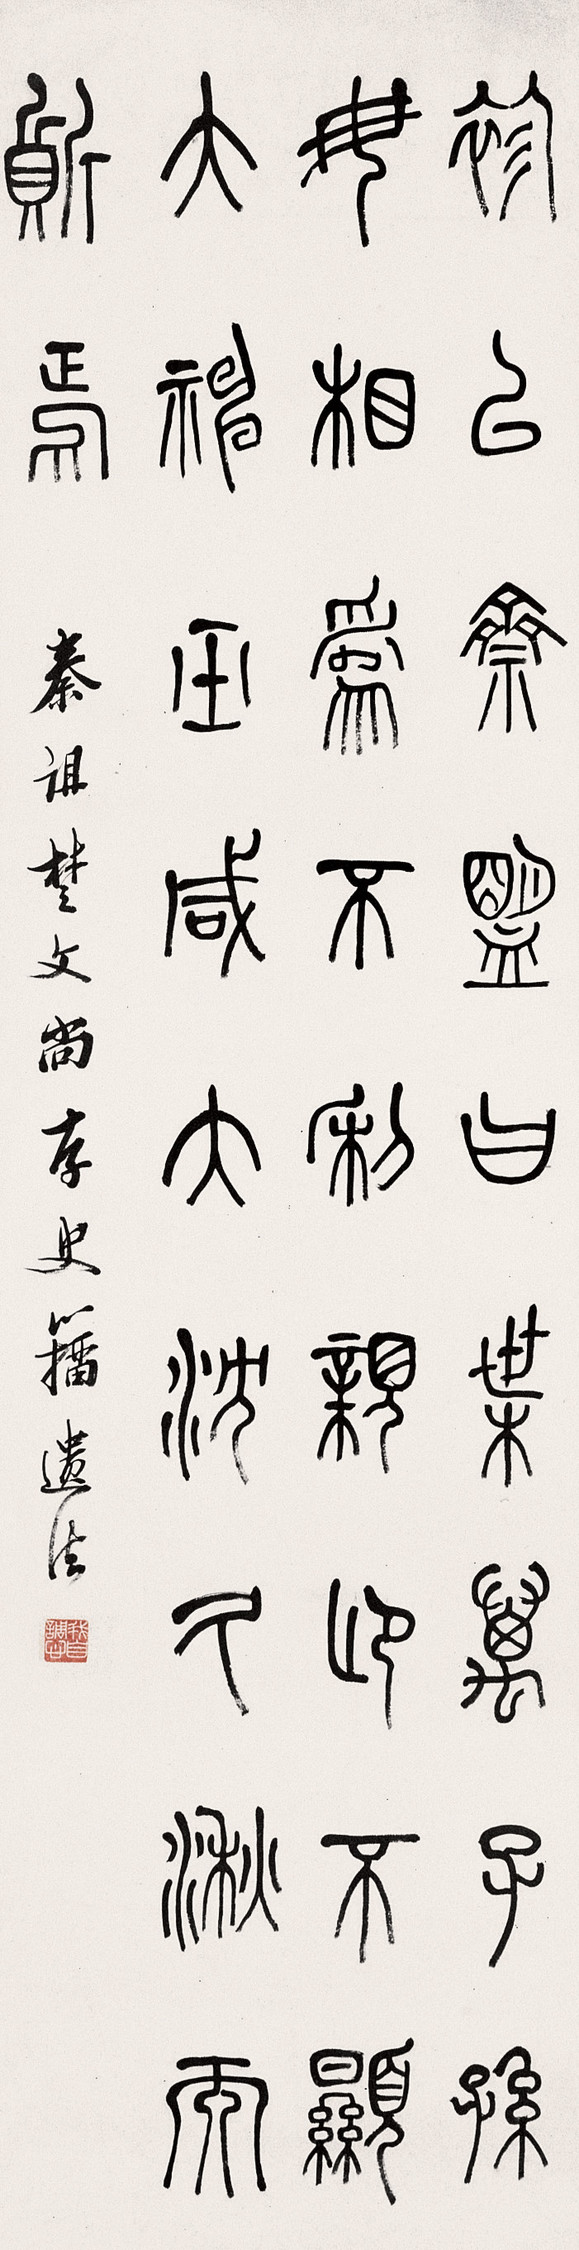 袗以齋盟曰葉萬子孫
毋相爲不利親卬不顯
大神巫咸大沈久湫而
質焉
秦詛楚文尚存史籀遺法